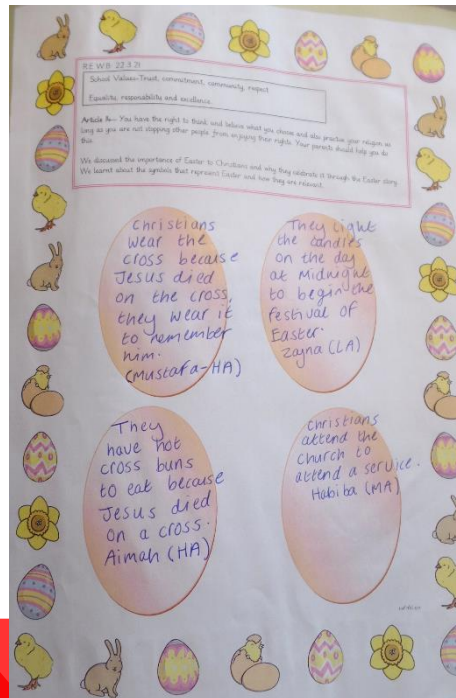 R.E W.B. 22.3.21
School Values-Trust, commitment, community, respect
Equality, responsibility and excellence.
You have the right to think and believe what you choose and also practise your religion as
long as you are not stopping other people from enjoying their rights. Your parents should help you do
this.
We discussed the importance of Easter to Christians and why they celebrate it through the Easter story.
We learnt about the symbols that represent Easter and how they are relevant.
Christians
wear the
cross because
Jesus died
on the cross,
they wear it
to remember
him.
(Mustafa-HA)
They light
the candles
on the day
at Midnight
to begin the
festival of
Easter.
Zayna (LA)
They
have hot
cross buns
to eat because
Jesus died
on a cross.
Aimah (HA)
Christians
attend the
church to
attend a service.
Habiba (MA)